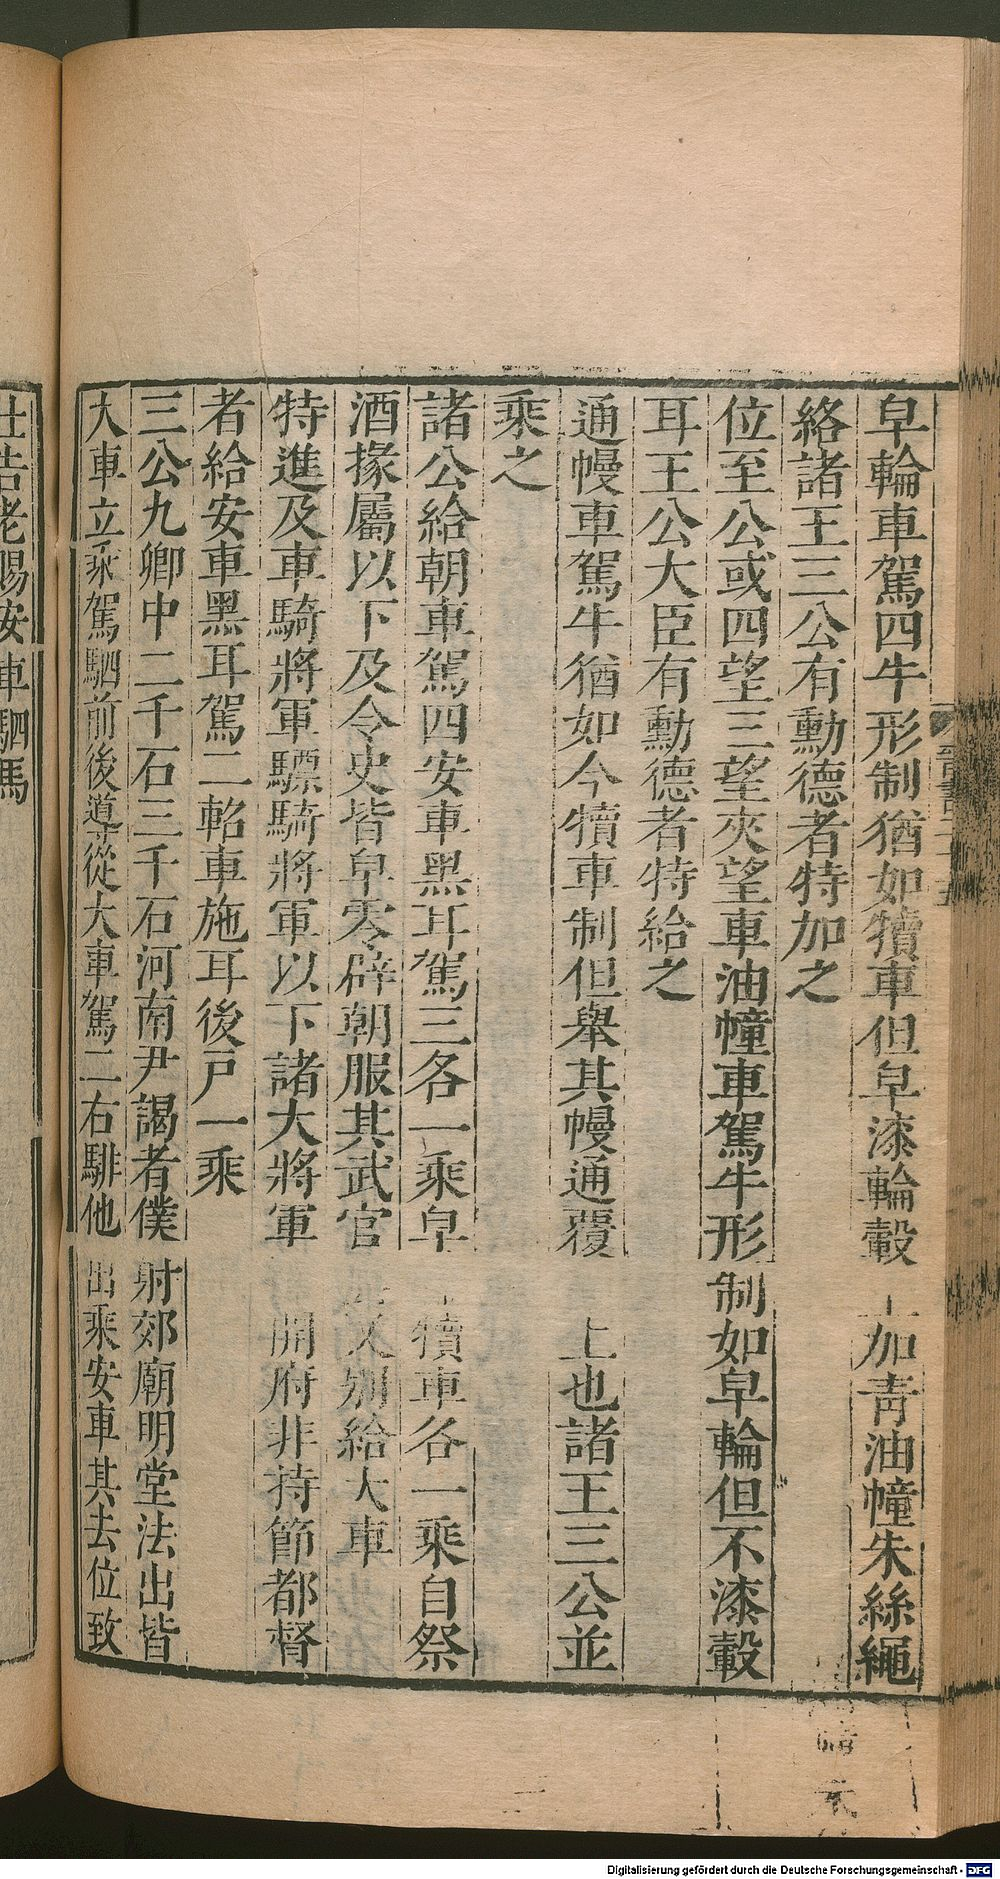 皁輪車駕四牛形制猶如犢車但皁漆輪轂上加青油幢朱絲繩
絡諸王三公有勳德者特加之
位至公或四望三望夾望車油幢車駕牛形制如皁輪但不漆轂
耳王公大臣有勳德者特給之
通幔車駕牛猶如今犢車制但舉其幔通覆上也諸王三公並
乘之
諸公給朝車駕四安車黑耳駕三各一乘皁犢車各一乘自祭
酒掾屬以下及令史皆皁零辟朝服其武官又別給大車
特進及車騎將軍驃騎將軍以下諸大將軍開府非持節都督
者給安車黑耳駕二軺車施耳後戸一乘
三公九卿中二千石二千石河南尹謁者僕射郊廟明堂法出皆
大車立乘駕駟前後導從大車駕二右騑他出乘安車其去位致
仕告老賜安車駟馬
Digitalisierung gefördert durch die Deutsche Forschungsgemeinschaft - DFG